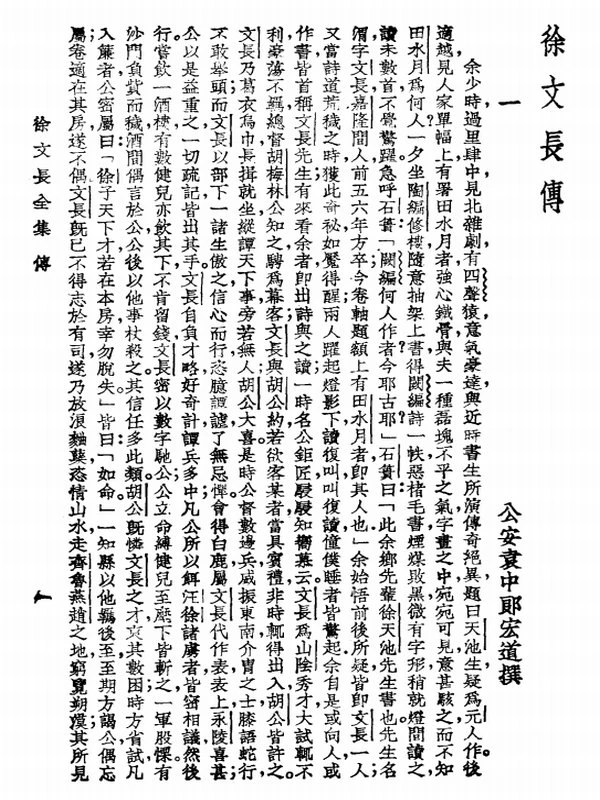 徐文長傳
一
公安袁中郎宏道撰
余少時過里肆中見北雜劇有四聲猿,意氣豪達與近時書生所演傳奇絕異題曰天池生疑爲元人作。後
適越見人家單幅上有署田水月者強心鐵骨與夫一種磊塊不平之氣字畫之中宛宛可見意甚駭之而不知
田水月爲何人?一夕坐陶編修樓隨意抽架上書得闕編詩一帙惡楮毛書煙煤敗黑微有字形稍就燈間讀之,
讀未數首不覺驚躍急呼石簣:「闕編何人作者?今耶古耶」石簣曰:「此余鄉先輩徐天池先生書也先生名
渭字文長嘉隆間人前五六年方卒今卷軸題額上有田水月者卽其人也」余始悟前後所疑皆卽文長一人
又當詩道荒穢之時獲此奇秘如魘得醒兩人躍起燈影下讀復叫叫復讀僮僕睡者皆驚起余自是或向人或
作書皆首稱文長先生有來看余者卽出詩與之讀一時名公鉅匠駸駸知嚮慕云。文長爲山陰秀才大試輒不
利豪蕩不羈總督胡梅林公知之聘爲幕客文長與胡公約若欲客某者當具賓禮非時輒得出入胡公皆許之。
文長乃葛衣烏巾長揖就坐縱譚天下事旁若無人胡公大喜是時公督數邊兵威振東南介冑之士膝語蛇行,
不敢舉頭而文長以部下一諸生傲之信心而行恣臆譚謔了無忌憚會得白鹿屬文長代作表表上永陵喜甚;
公以是益重之一切疏記皆出其手文長自負才略好奇計譚兵多中凡公所以餌汪徐諸虜者皆密相議然後
行嘗飲一酒樓有數健兒亦飲其下不肯留錢文長密以數字馳公公立命縛健兒至麾下皆斬之一軍股慄有
沙門負貲而穢酒間偶言於公公後以他事杖殺之其信任多此類胡公旣憐文長之才哀其數困時方省試凡
入簾者公密屬曰:「徐子天下才若在本房幸勿脫失」皆曰:「如命」一知縣以他羈後至至期方謁公偶忘
屬卷適在其房遂不偶文長旣已不得志於有司遂乃放浪麯糵恣情山水走齊魯燕趙之地窮覽朔漠其所見
徐文長全集 傳 一